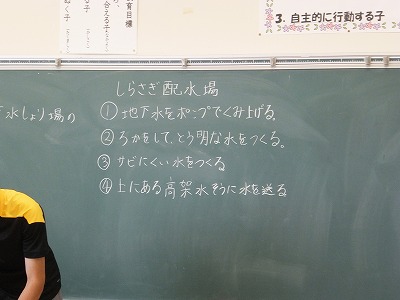 育目標
合える子
る子
ぬく子
3. 自主的に行動する子
水しょり場の
しらさぎ配水場
①地下水をポンプでくみ上げる。
②ろかをして、とう明な水をつくる。
③サビにくい水をつくる
④上にある高架水そうに水を送る